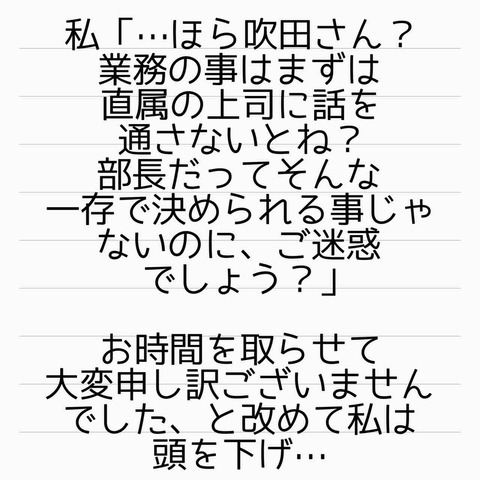 私「…ほら吹田さん？
業務の事はまずは
直属の上司に話を
通さないとね？
部長だってそんな
一存で決められる事じゃ
ないのに、ご迷惑
でしょう？」
お時間を取らせて
大変申し訳ございません
でした、と改めて私は
頭を下げ…